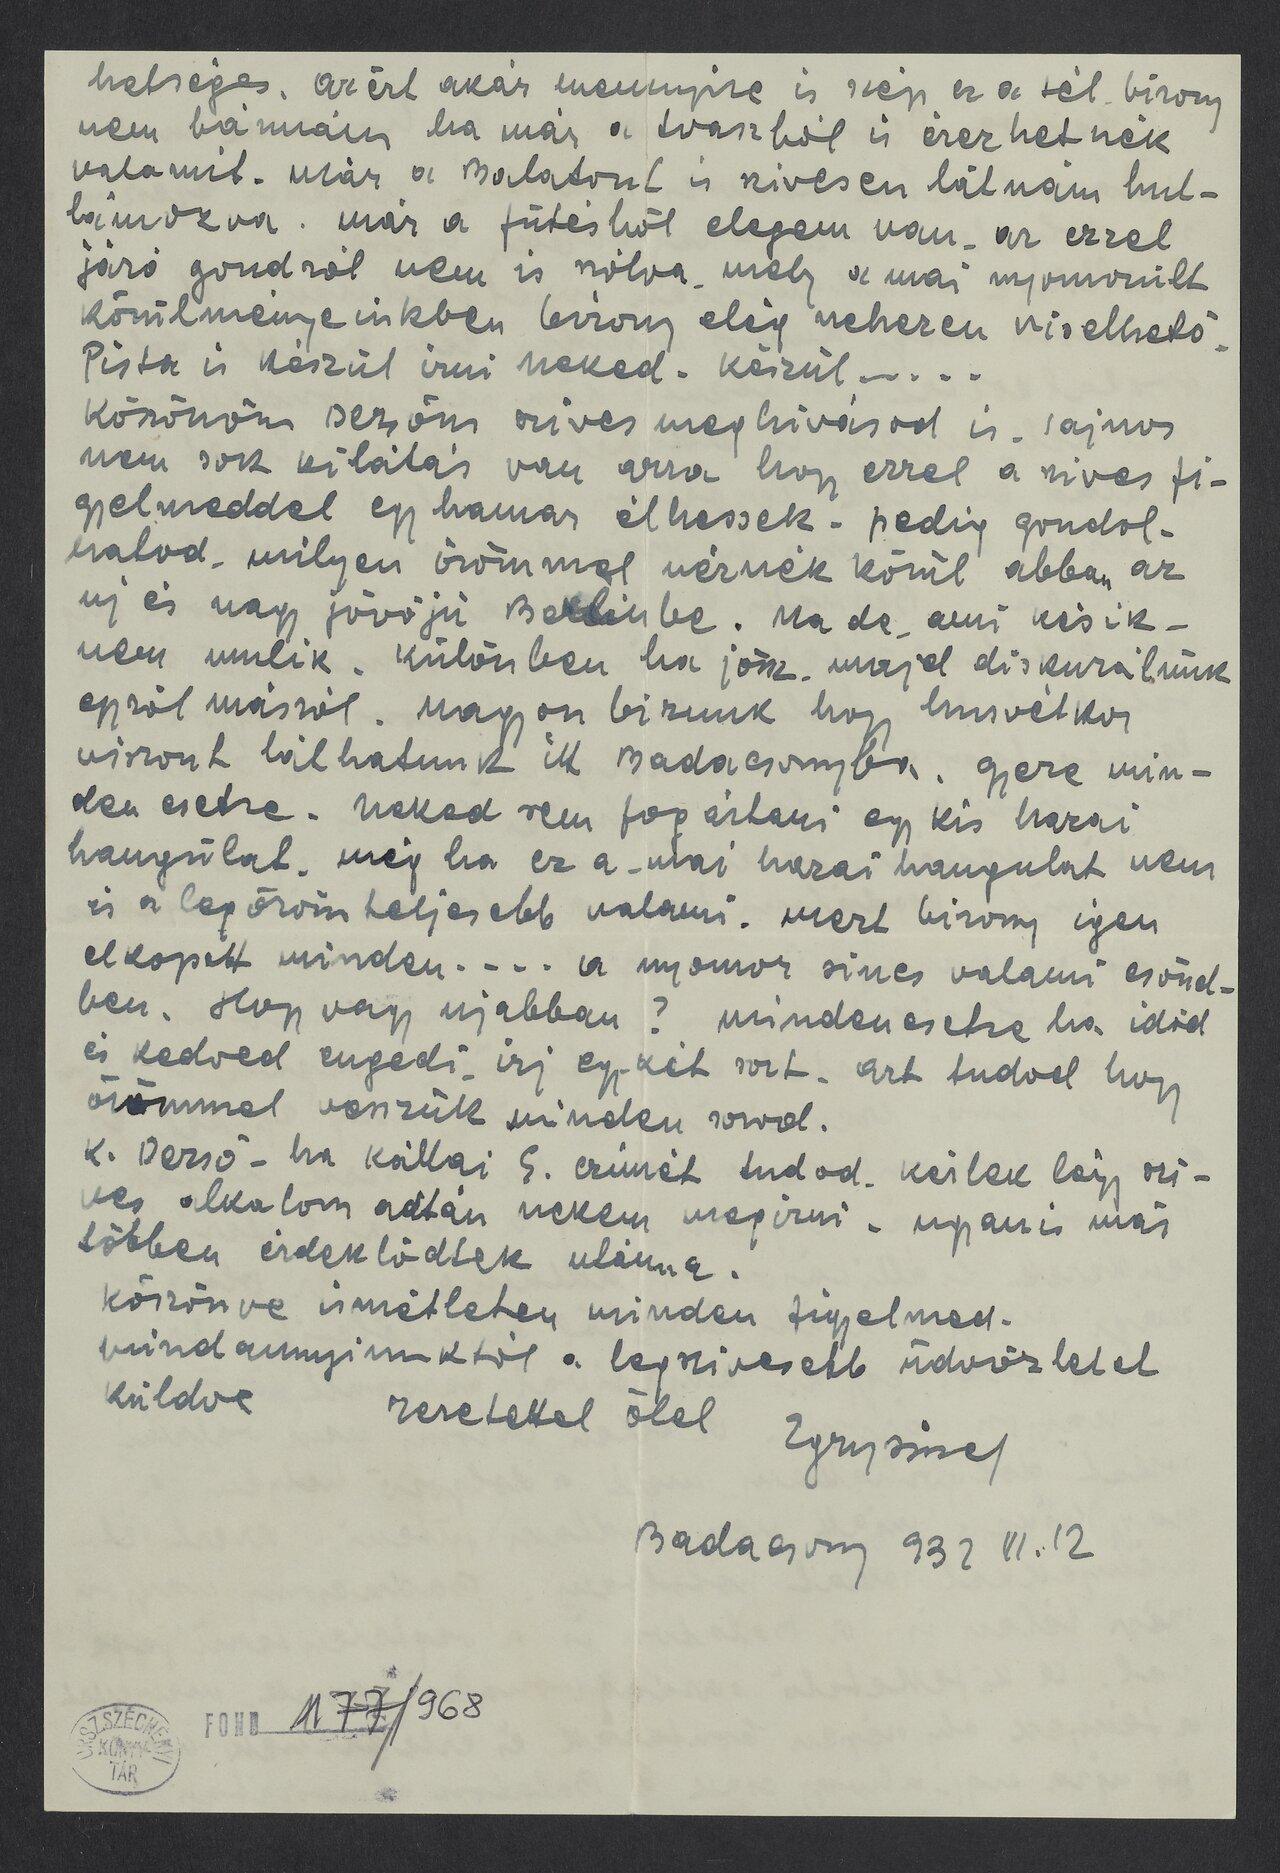 hetséges. azért akár mennyire is szép ez a tél. bizony
nem bánnám ha már a tvaszból is érezhetnék
valamit. már a Balatont is szivesen látnám hul-
lámozva. már a fütésből elegem van. az ezzel
járó gondról nem is szólva. mely a mai nyomorult
körülményeinkben bizony elég nehezen viselhető.
Pista is készül irni neked. készül.....
Köszönöm Dezsőm szives meghivásod is. sajnos
nem sok kilátás van arra hogy ezzel a szives fi-
gyelmeddel egyhamar élhessek. pedig gondol-
hatod. milyen örömmel néznék körül abban az
uj és nagy jövőjü Berlinbe. Na de. ami késik-
nem mulik. különben ha jösz. majd diskurálünk
egyről másról. nagyon bizunk hogy husvétkor
viszont láthatunk itt Badacsonyba. gyere min-
den esetre. neked sem fog ártani egy kis hazai
hangulat. még ha ez a mai hazai hangulat nem
is a legörömteljesebb valami. mert bizony igen
elkopott minden.... a nyomor sincs valami csönd-
ben. Hogy vagy ujabban? mindenesetre ha időd
és kedved engedi. irj egy-két sort. azt tudod hogy
örömmel veszük minden sorod.
K. Dezső - ha Kállai E. czimét tudod. kérlek légy szi-
ves alkalom adtán nekem megirni. ugyanis más
többen érdeklődtek utánna.
köszönve ismételten minden figyelmed.
mindannyiunktól a legszivesebb üdvözletet
küldve szeretettel ölel
Egry József
Badacsony 932 III. 12
ORSZ. SZÉCHÉNYI
KÖNYV-
TÁR
FOND 177/968